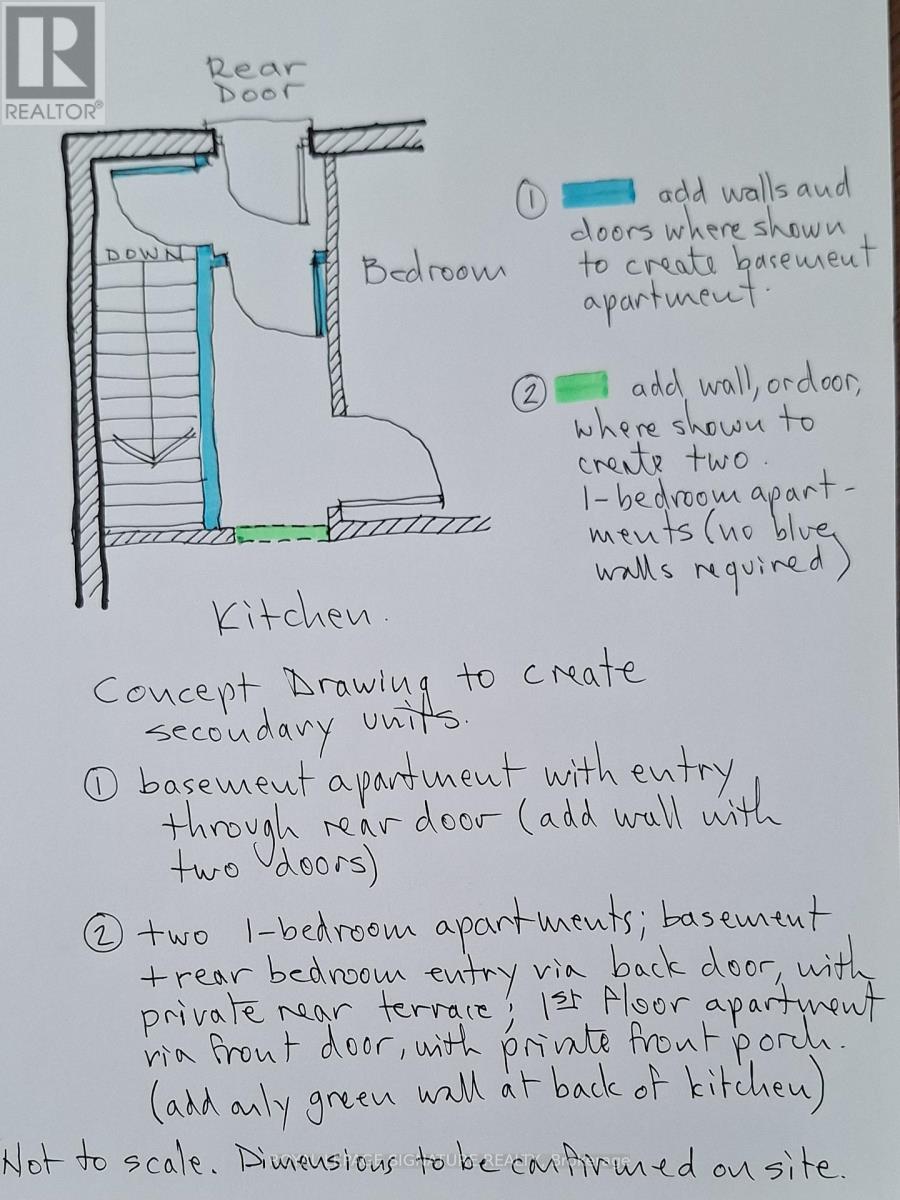 REALTOR®
Rear
Door
DOWN
Bedroom
Kitchen.
① add walls and
doors where shown
to create basement
apartment.
② add wall, or door,
where shown to
create two
1-bedroom apart-
ments (no blue
walls required)
Concept Drawing to create
secondary units.
① basement apartment with entry
through rear door (add wall with
two doors)
② two 1-bedroom apartments; basement
+ rear bedroom entry via back door, with
private rear terrace; 1st floor apartment
via front door, with private front porch.
(add only green wall at back of kitchen)
Not to scale. Dimensions to be confirmed on site.
ROYAL LEPAGE SIGNATURE REALTY, Brokerage